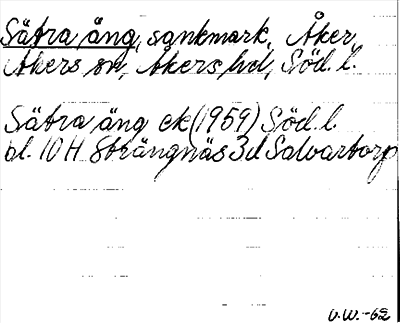 Sätra äng, sankmark, Åker,
Åkers sn, Åkers hd, Söd. l.
Sätra äng ek (1959) Söd. l.
bl. 10 H Strängnäs 3d Salvartorp
U.W.-62